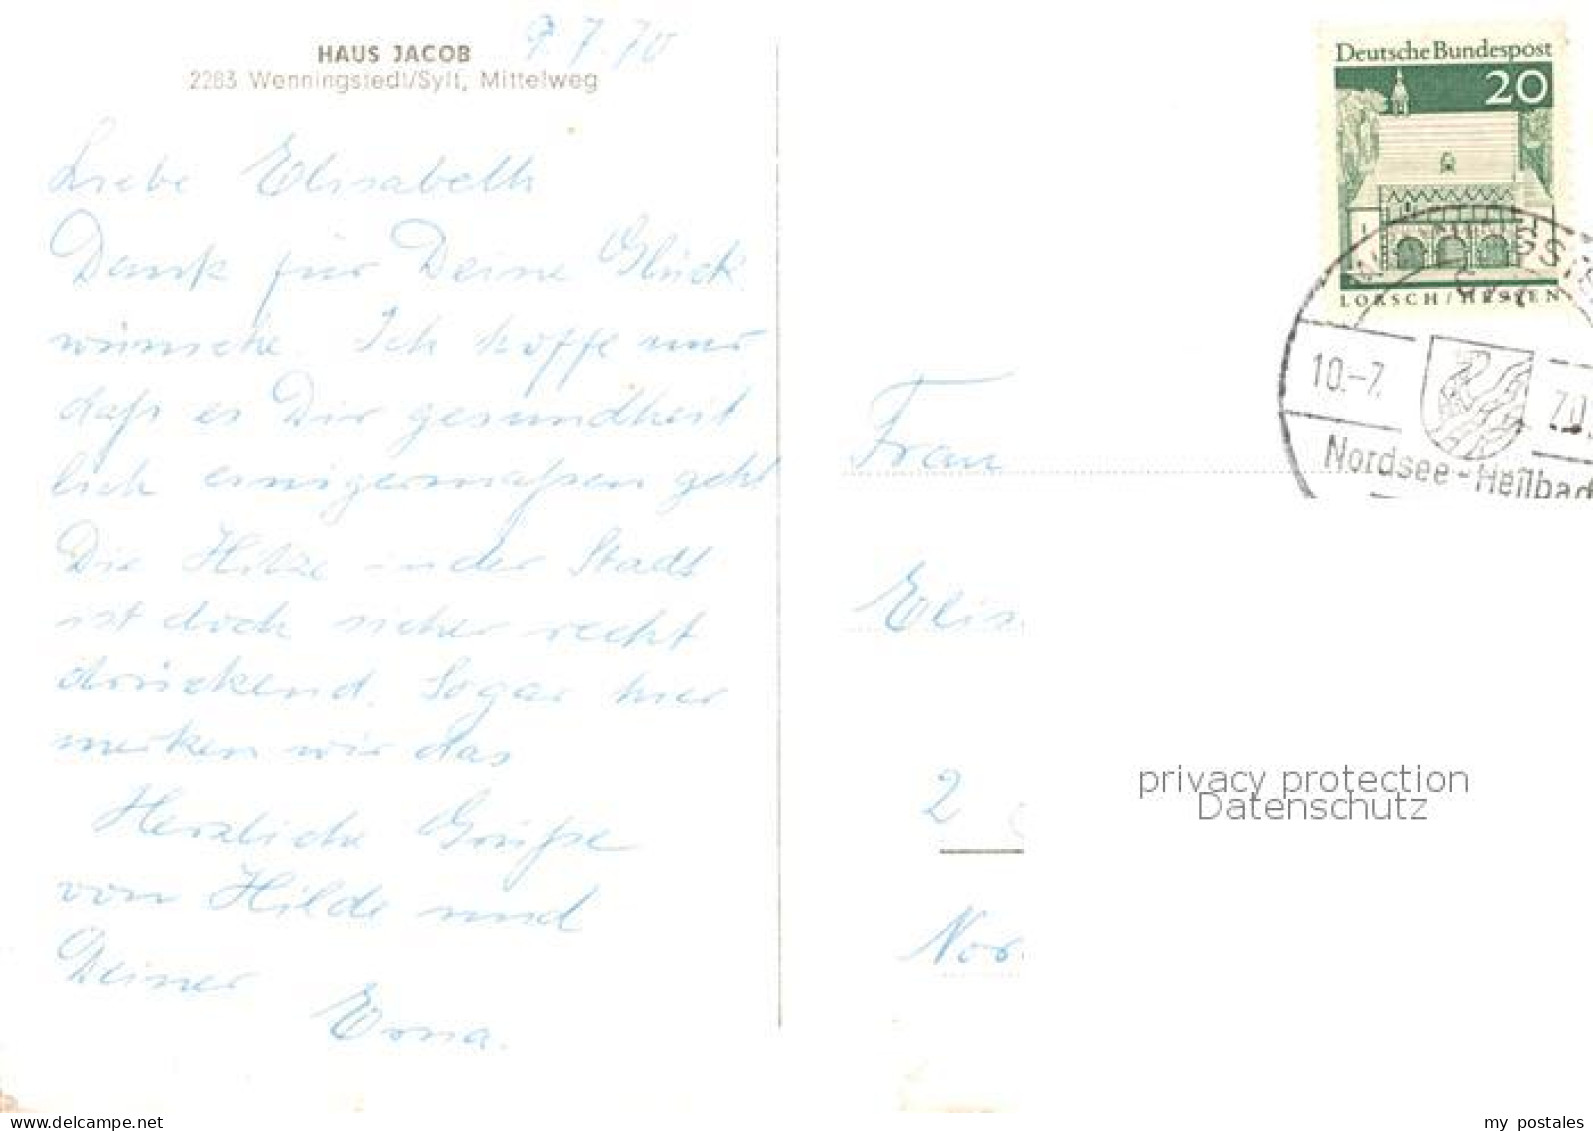 HAUS JACOB
2283 Wenningstedt/Sylt, Mittelweg
9.7.70
Liebe Elisabeth
Dank für Deine Glück
wünsche. Ich hoffe nur
daß es Dir gesundheit
lich einigermaßen geht
Die Hitze in der Stadt
ist doch sicher recht
drückend. Sogar hier
merken wir das
Herzliche Grüße
von Hilde und
Deiner Erna.
Deutsche Bundespost
20
LORSCH/HESSEN
10.-7. 70.
Nordsee-Heilbad
Frau
Elis
2
Nor
privacy protection
Datenschutz
www.delcampe.net
my_postales